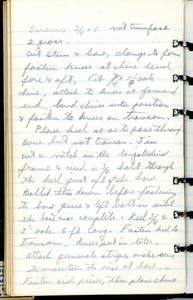 Screws 7/8 not transport
2 gross.
Cut stem & bow, change to fore
fasten knees at chine level
fore & aft, Fit 
chine, attach to knees at forward
end, bend chine into position
& fasten to knees on transom.
Place keel so as to pass through
bow but not transom. Then
cut a notch in the longitudinal
frame & run a bolt through
the keel just
Bolted this down before fastening
to bow piece & left bolt in until
the boat was complete. Keel
5' oak 6 ft long. Fasten keel to
transom. Knees put in later.
Attach gunwale strips, make sure
to maintain the rise at bow.
Fasten side pieces, then plane chine